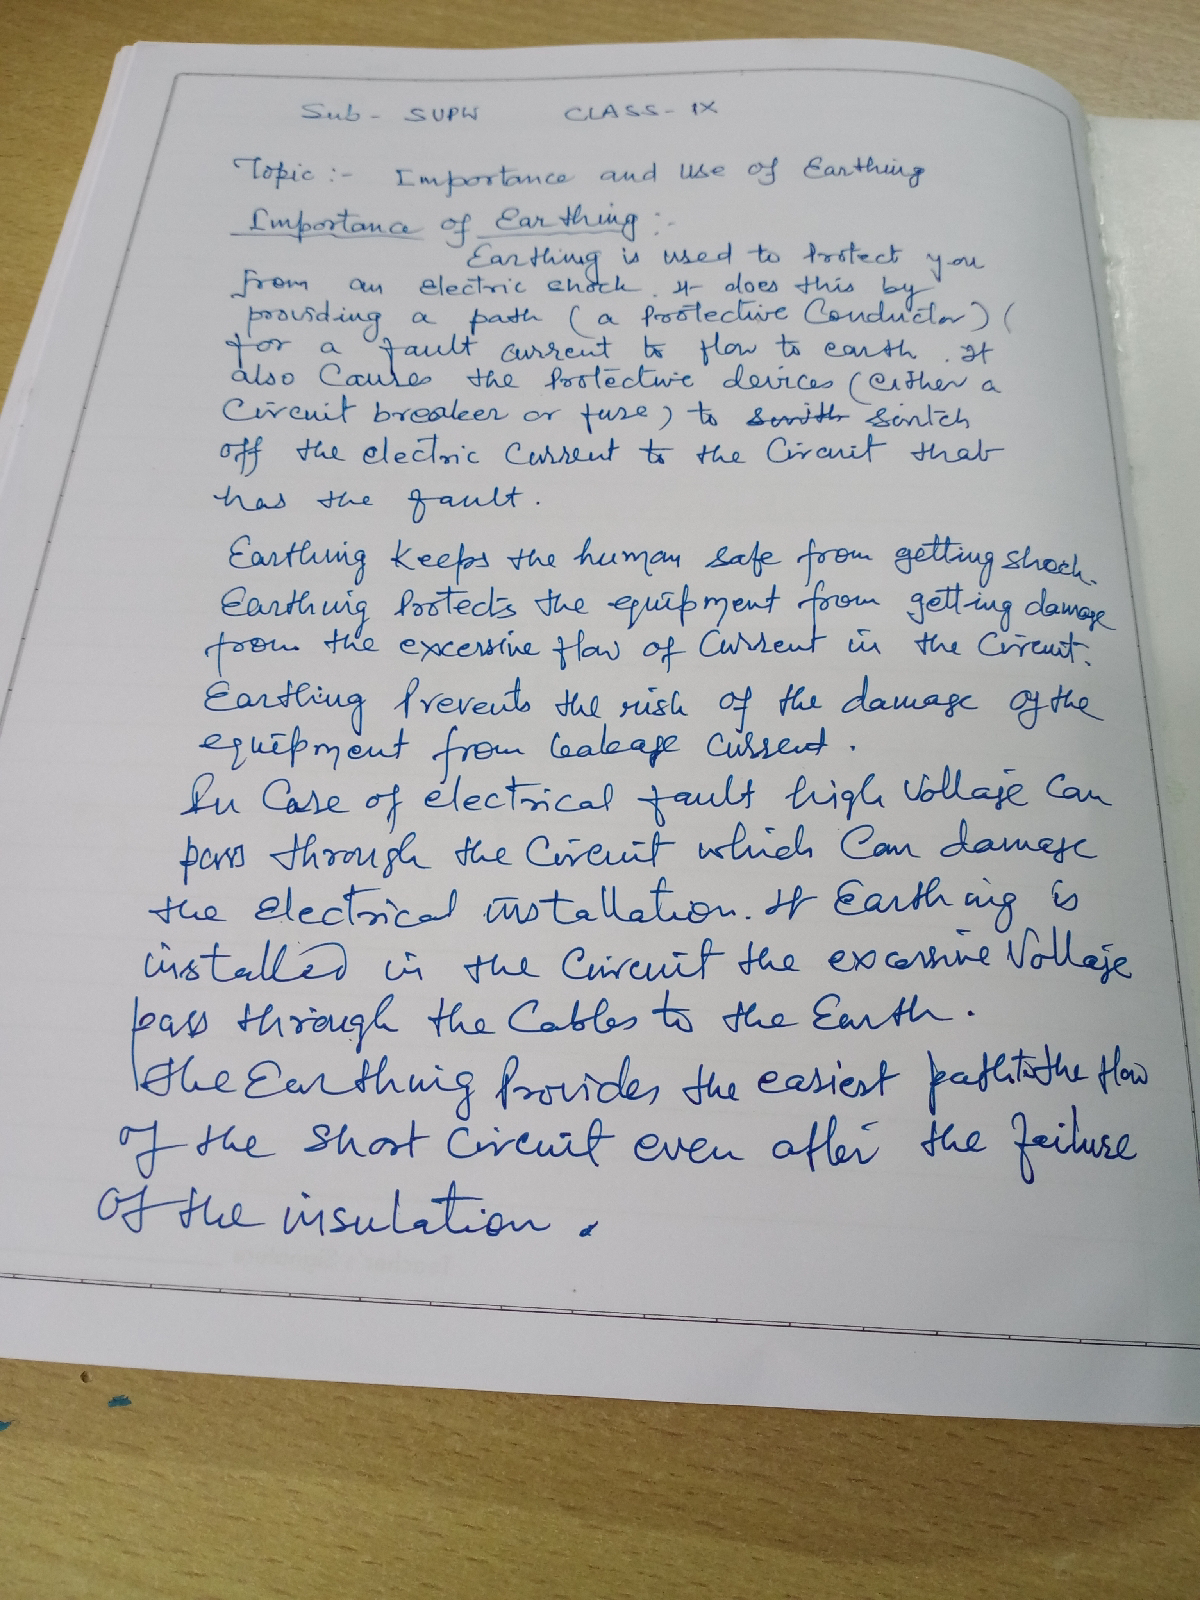 Sub - SUPW CLASS - IX
Topic :- Importance and use of Earthing
Importance of Earthing :-
Earthing is used to protect you
from an electric shock. It does this by
providing a path (a Protective Conductor) (
for a fault current to flow to earth. It
also Causes the Protective devices (either a
Circuit breaker or fuse) to switch
off the electric Current to the Circuit that
has the fault.
Earthing Keeps the human safe from getting shock.
Earthing Protects the equipment from getting damage
from the excessive flow of Current in the Circuit.
Earthing Prevents the risk of the damage of the
equipment from leakage current.
In Case of electrical fault high Voltage Can
pass through the Circuit which Can damage
the electrical installation. If Earthing is
installed in the Circuit the excessive Voltage
pass through the Cables to the Earth.
The Earthing Provides the easiest path to the flow
of the short Circuit even after the failure
of the insulation.
Teacher's Signature